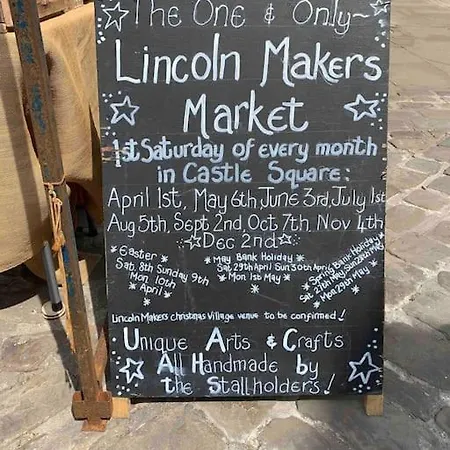 The One & Only~
Lincoln Makers
Market
1st Saturday of every month
in Castle Square:
April 1st, May 6th, June 3rd, July 1st
Aug 5th, Sept 2nd, Oct 7th, Nov 4th
Dec 2nd
*Easter*
Sat. 8th Sunday 9th
Mon 10th
April
May Bank Holiday
Sat 29th April Sun 30th April
Mon 1st May
Spring Bank Holiday
Sat 27th May, Sun 28th May
Mon 29th May
Lincoln Makers Christmas Village venue to be confirmed!
Unique Arts & Crafts
All Handmade by
the Stallholders!